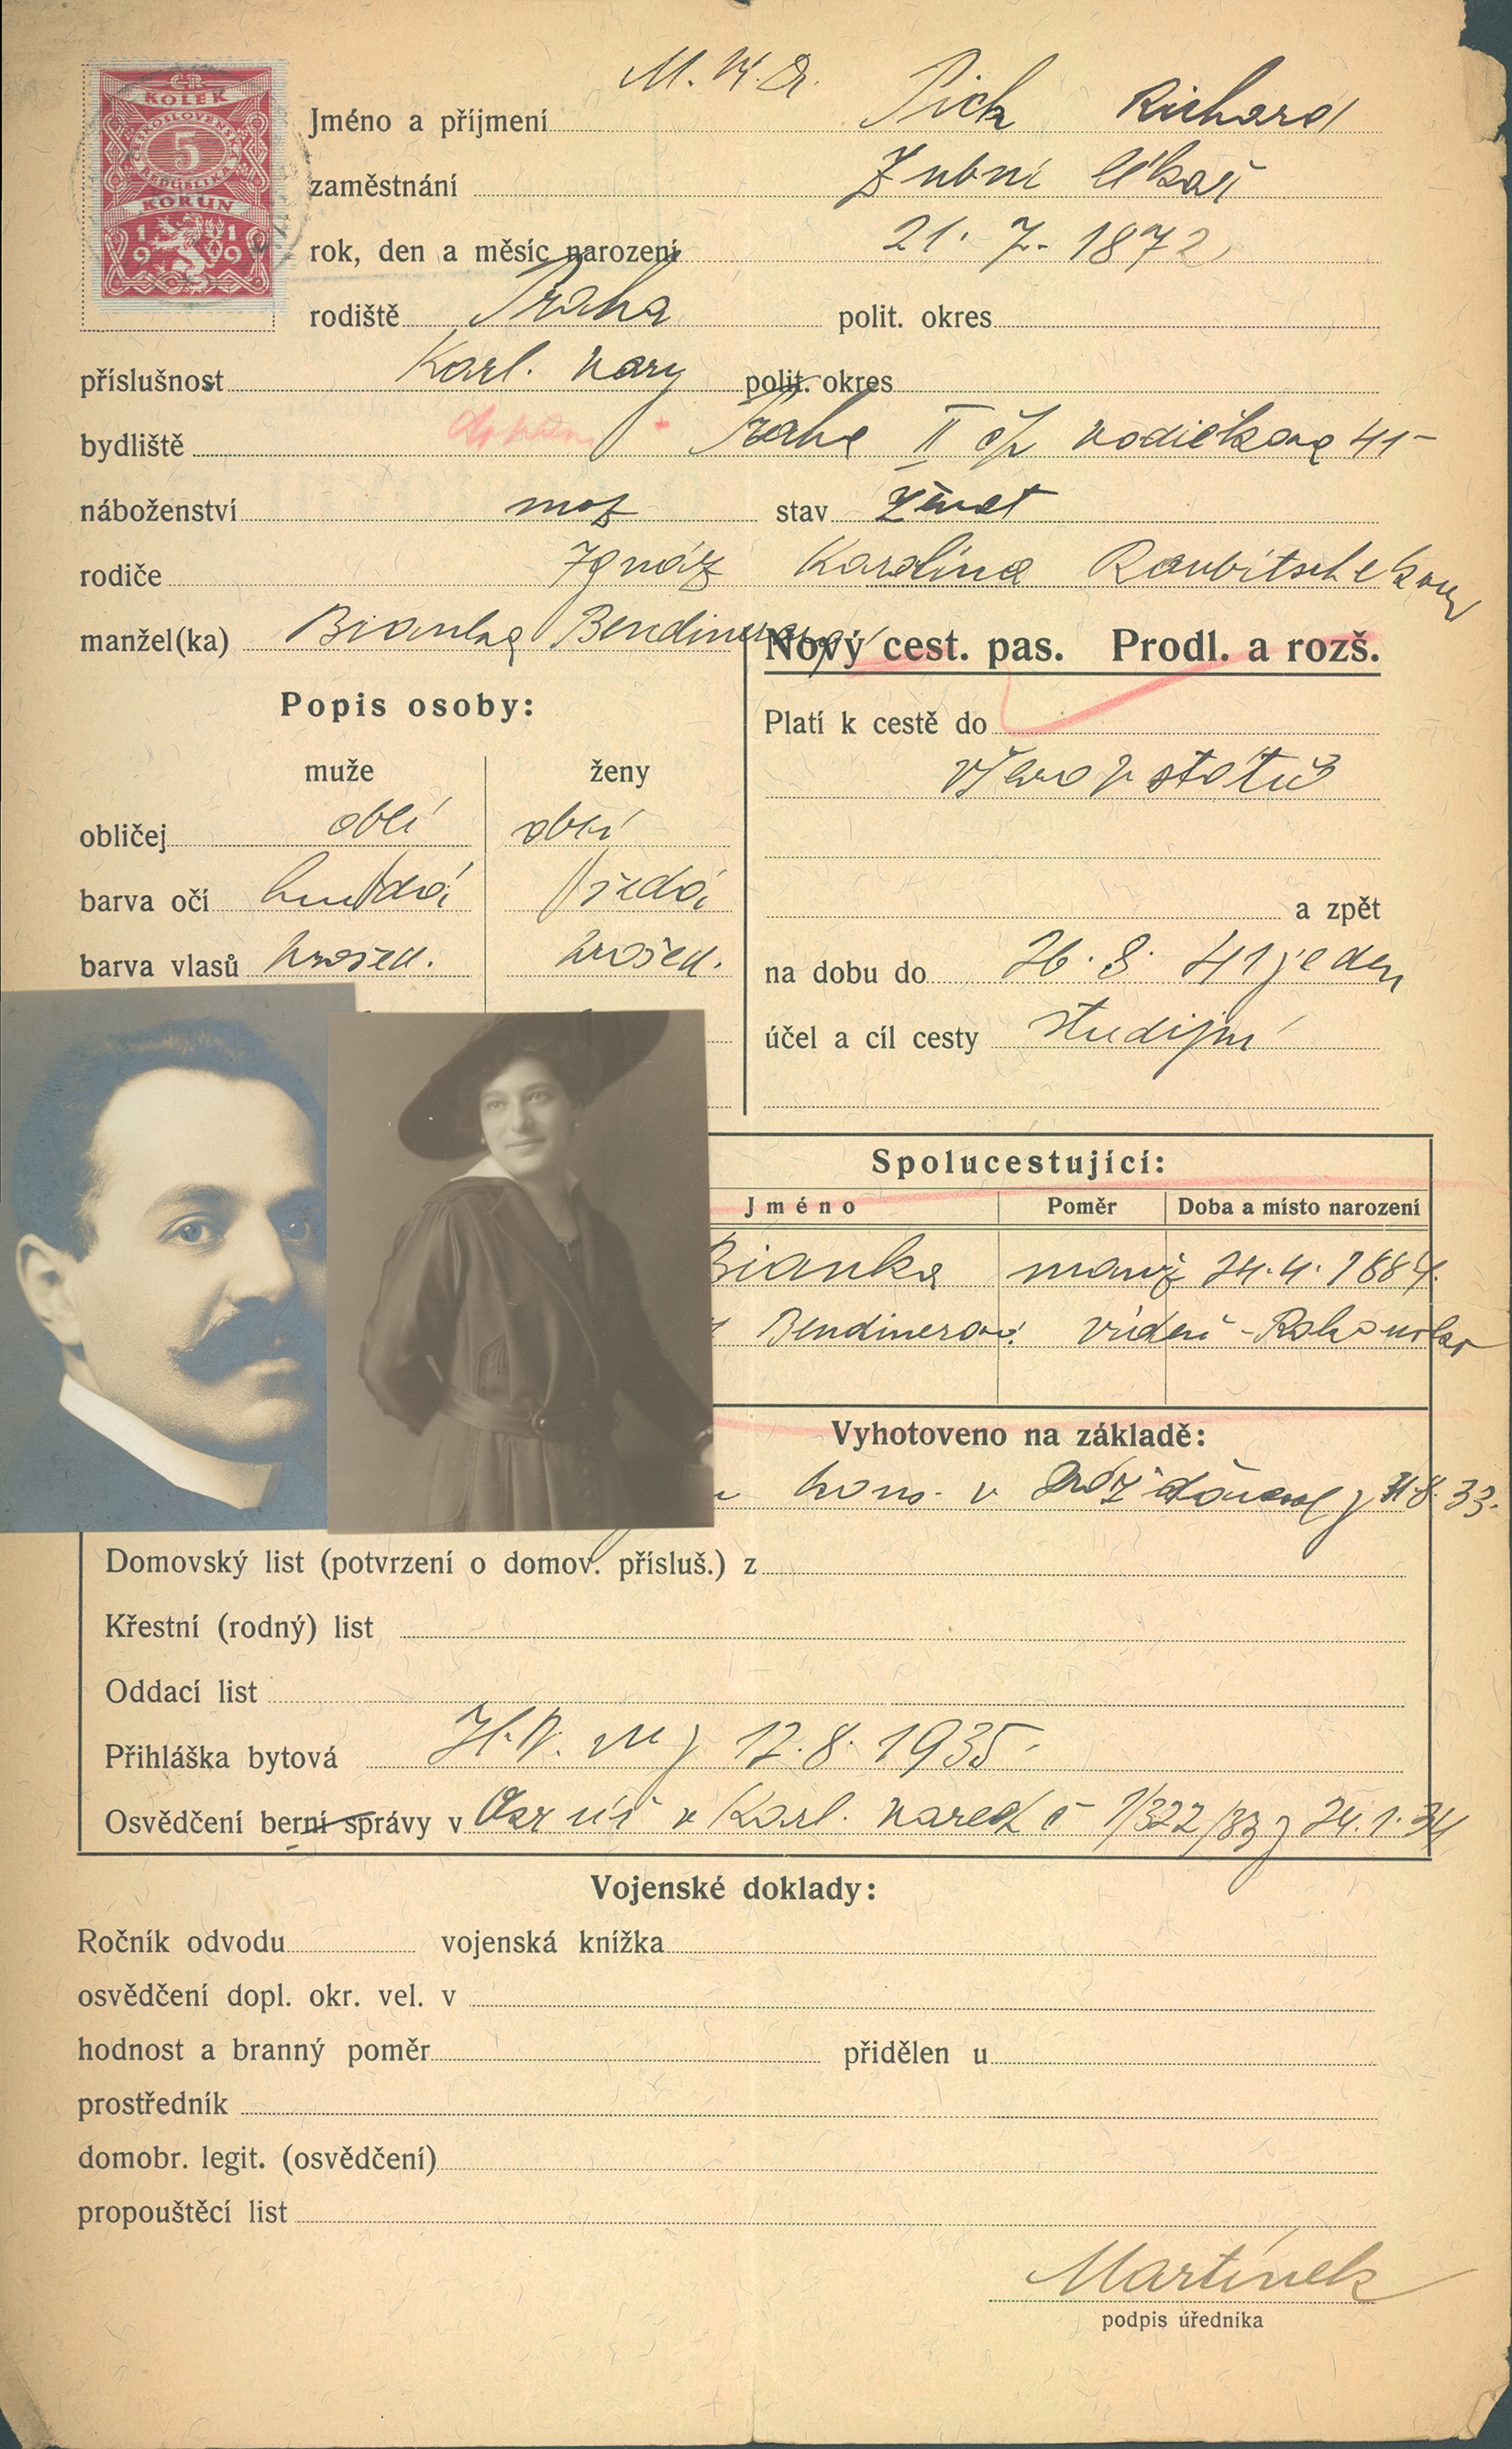 ČR
KOLEK
ČESKOSLOVENSKÁ
5
REPUBLIKA
KORUN
1919
Jméno a příjmení M. Pick Richard
zaměstnání Zubní lékař
rok, den a měsíc narození 21. 7. 1872
rodiště Praha polit. okres
příslušnost Karl. Vary polit. okres
bydliště Praha II čp Vodičkova 41
náboženství mož stav ženat
rodiče Ignáz Karolina Raubitschekova
manžel(ka) Bianka Bendinerova
Nový cest. pas. Prodl. a rozš.
Popis osoby:
Platí k cestě do
muže ženy
obličej oblí oblí
barva očí hnědá šedá
barva vlasů prošed. prošed.
a zpět
na dobu do
účel a cíl cesty studijní
Spolucestující:
Jméno Poměr Doba a místo narození
Bianka manž 24. 4. 1884
Bendinerová Vídeň - Rakousko
Vyhotoveno na základě:
v 8. 33.
Domovský list (potvrzení o domov. přísluš.) z
Křestní (rodný) list
Oddací list
Přihláška bytová 17. 8. 1935
Osvědčení berní správy v Karl. Varech č 1/322/33 z 24. 1. 34
Vojenské doklady:
Ročník odvodu vojenská knížka
osvědčení dopl. okr. vel. v
hodnost a branný poměr přidělen u
prostředník
domobr. legit. (osvědčení)
propouštěcí list
Martínek
podpis úředníka